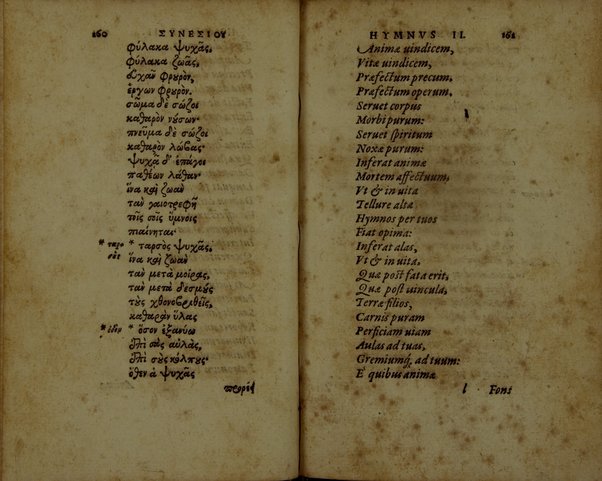 160 ΣΥΝΕΣΙΟΥ
φύλακα ψυχᾶς,
φύλακα ζωᾶς,
εὐχᾶν φρυρὸν,
ἔργων φρυρὸν.
σῶμα δὲ σώζοι
καθαρὸν νύσων·
πνεῦμα δὲ σώζοι
καθαρὸν λώβας·
ψυχᾷ δ' ἐπάγοι
παθέων λάθαν·
ἵνα καὶ ζωὰν
τὰν γαιοτρεφῆ
τοῖς σοῖς ὕμνοις
πιαίνηται·
* ταρσὸς * ταρσὸς ψυχᾶς,
ἵνα καὶ ζωὰν
τὰν μετὰ μοίρας,
τὰν μετὰ δεσμοὺς
τοὺς χθονο
καθαρὰν ὕλας
* ὁδὸν * ὅσον ἐξανύω
ἐπὶ σὰς αὐλὰς,
ἐπὶ σοὺς κόλπους·
ὅθεν ἁ ψυχᾶς
προρέ
HYMNVS II. 161
Animæ uindicem,
Vitæ uindicem,
Præfectum precum,
Præfectum operum,
Seruet corpus
Morbi purum:
Seruet spiritum
Noxæ purum:
Inferat animæ
Mortem affectuum,
Vt & in uita
Tellure alta
Hymnos per tuos
Fiat opima:
Inferat alas,
Vt & in uita,
Quæ post fata erit,
Quæ post uincula,
Terræ filios,
Carnis puram
Perficiam uiam
Aulas ad tuas,
Gremiumq́; ad tuum:
E quibus animæ
l Fons